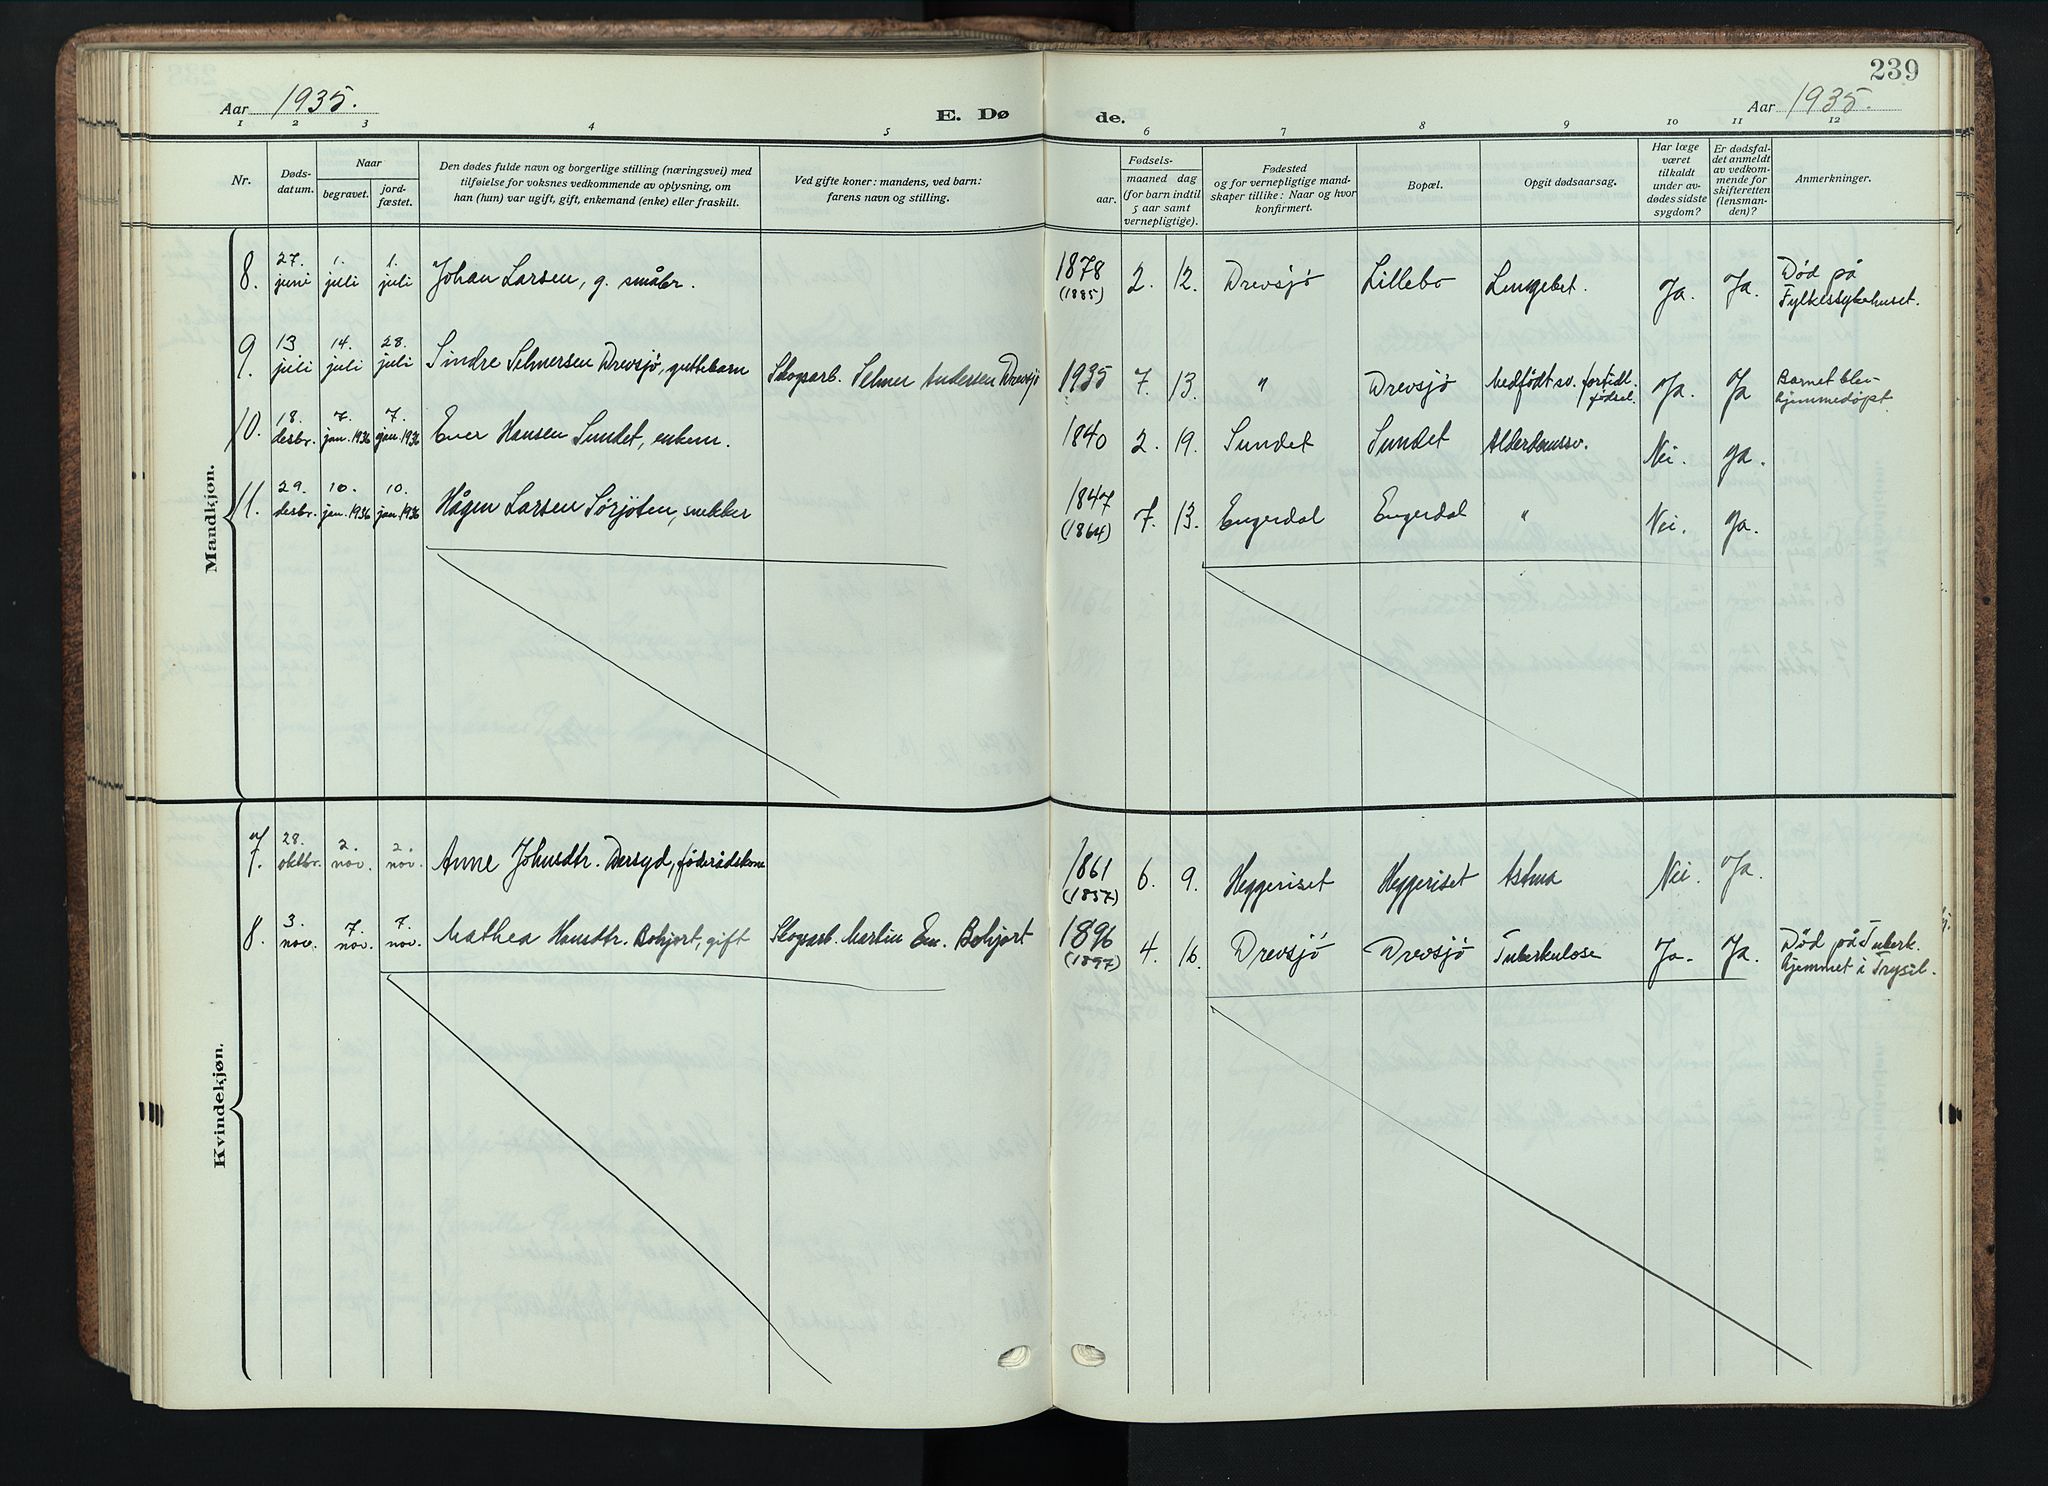 239
Aar 1935.
E. Dø
de.
Aar 1935.
1 2 3 4 5 6 7 8 9 10 11 12
Nr.
Døds-
datum.
Naar
begravet.
jord-
fæstet.
Den dødes fulde navn og borgerlige stilling (næringsvei) med
tilføielse for voksnes vedkommende av oplysning, om
han (hun) var ugift, gift, enkemand (enke) eller fraskilt.
Ved gifte koner: mandens, ved barn:
farens navn og stilling.
Fødsels-
aar.
maaned dag
(for barn indtil
5 aar samt
vernepligtige).
Fødested
og for vernepligtige mand-
skaper tillike: Naar og hvor
konfirmert.
Bopæl.
Opgit dødsaarsag.
Har læge
været
tilkaldt
under av-
dødes sidste
sygdom?
Er dødsfal-
det anmeldt
av vedkom-
mende for
skifteretten
(lensman-
den)?
Anmerkninger.
Mandkjøn.
8. 27. juni 1. juli 1. juli Johan Larsen, g. småbr. 1878 (1885) 2. 12. Drevsjø Lillebo Lungebet. Ja. Ja. Død på
Fylkessykehuset.
9. 13 juli 14. juli 28. juli Sindre Selmersen Drevsjø, guttebarn Skogsarb. Selmer Andersen Drevsjø 1935 7. 13. " Drevsjø Medfødt sv. fortidl.
fødsel. Ja. Ja Barnet blev
hjemmedøpt.
10. 18. desbr. 7. jan. 1936 7. jan. 1936 Ever Hansen Sundet, enkem. 1840 2. 19. Sundet Sundet Alderdomssv. Nei. Ja.
11. 29. desbr. 10. jan. 1936 10. jan. 1936 Hågen Larsen Sørjoten, snekker 1847 (1864) 7. 13. Engerdal Engerdal " Nei. Ja.
Kvindekjøn.
7. 28. oktbr. 2. nov. 2. nov. Anne Johnsdtr. Dersyd, føderådskone 1861 (1857) 6. 9. Heggeriset Heggeriset Astma Nei. Ja.
8. 3. nov. 7. nov. 7. nov. Mathea Hansdtr. Bohjort, gift Skogsarb. Martin Em. Bohjort 1896 (1897) 4. 16. Drevsjø Drevsjø Tuberkulose Ja. Ja. Død på Tuberk.
hjemmet i Trysil.